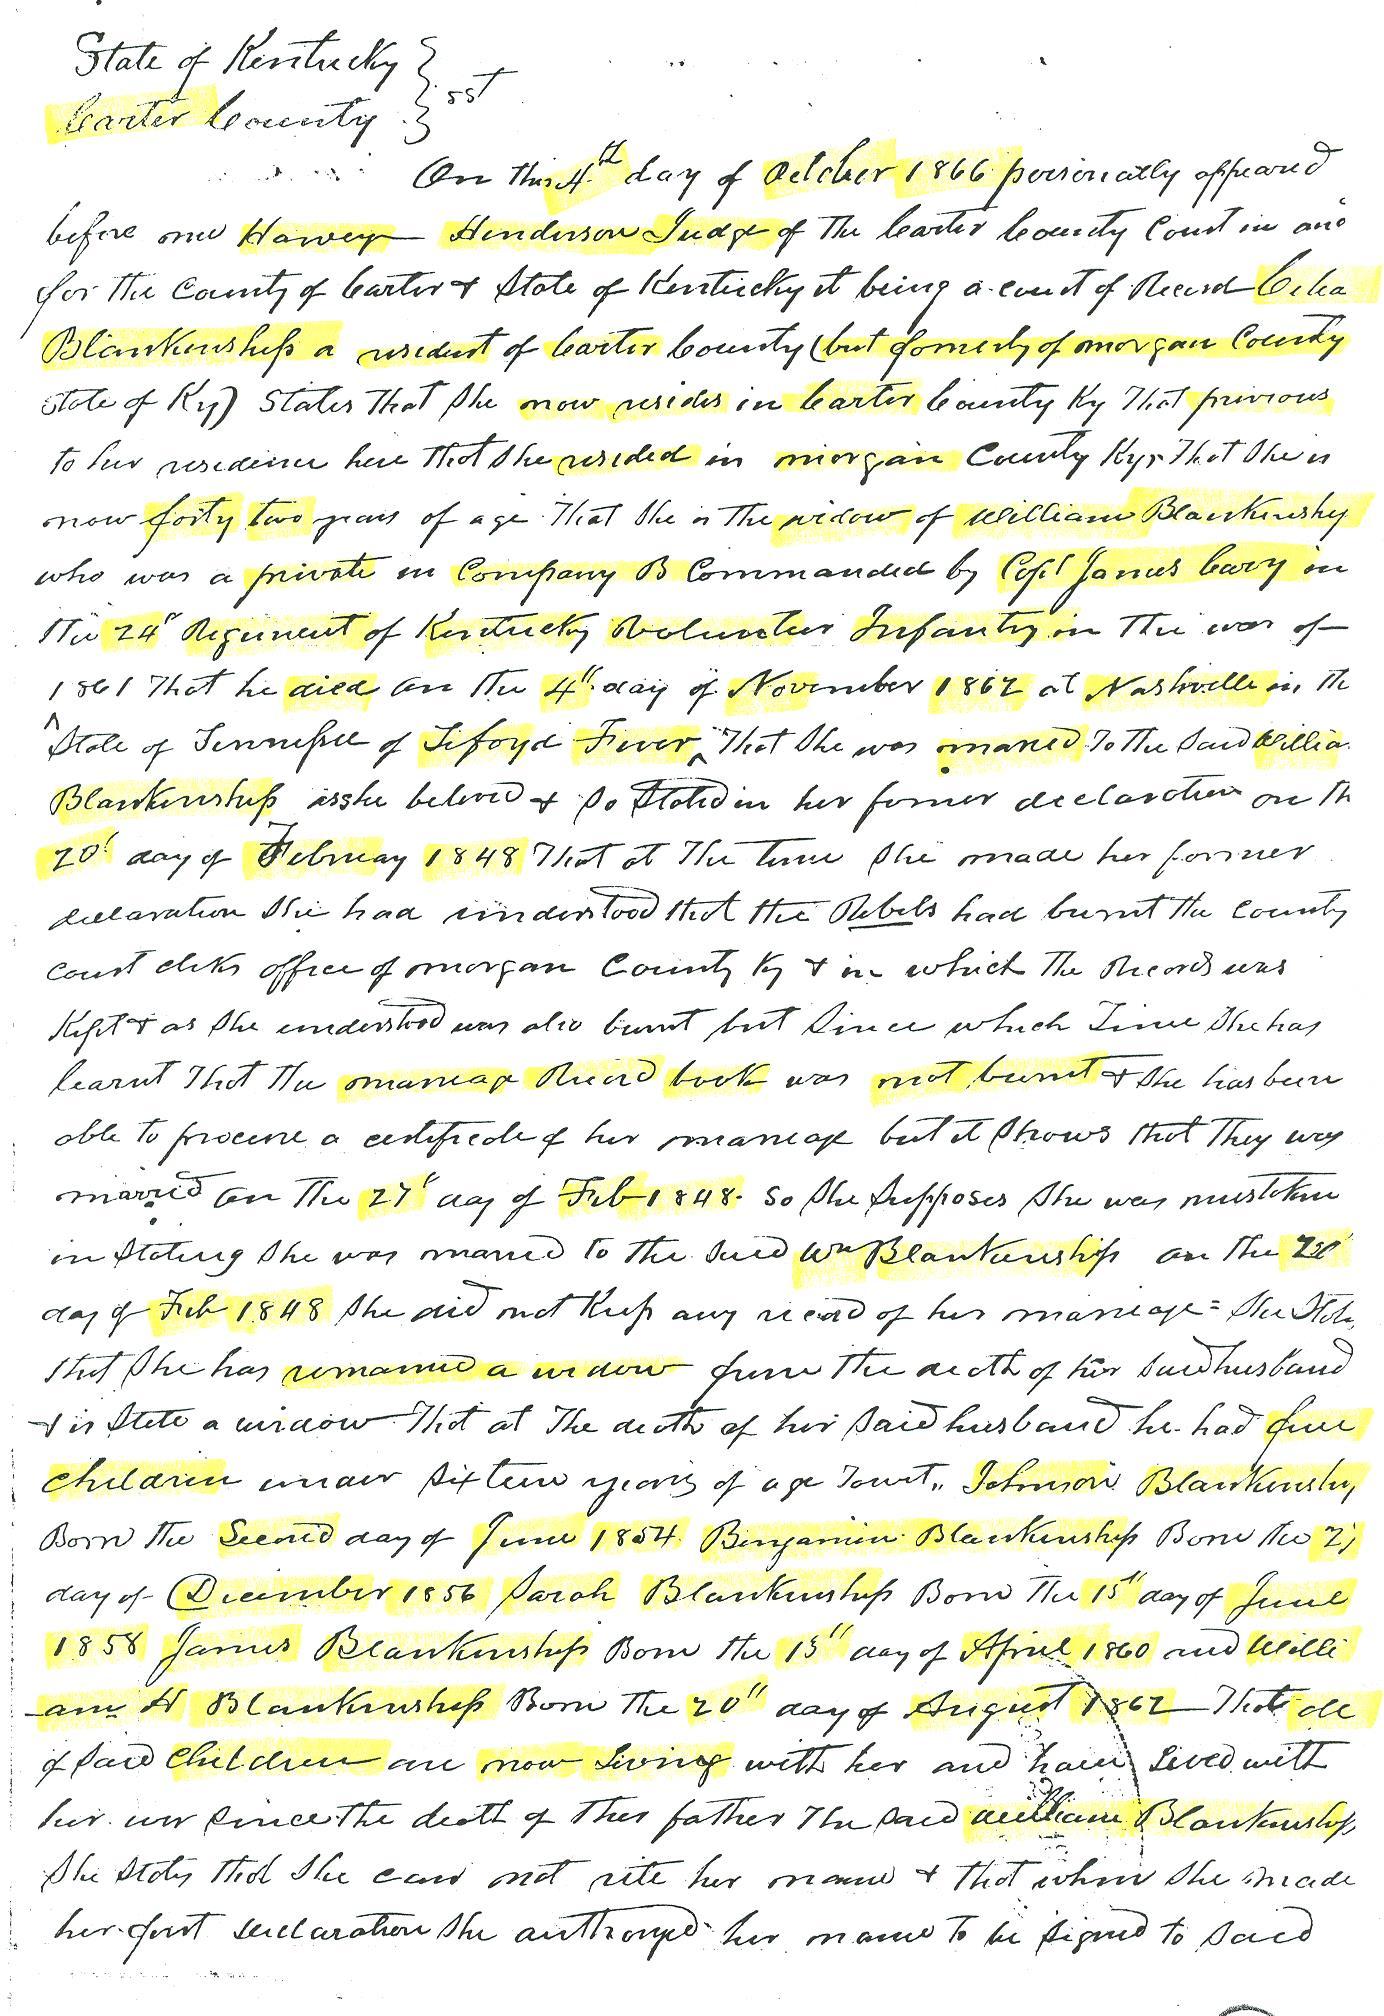 State of Kentucky }
Carter County } sst
On this 4th day of October 1866 personally appeared
before me Harvey Henderson Judge of the Carter County Court in and
for the County of Carter & State of Kentucky it being a court of Record Celia
Blankenship a resident of Carter County (but fomerly of morgan County
State of Ky) States that She now resides in Carter County Ky That privious
to her residence here that She resided in morgan County Ky, That She is
now forty two years of age That She is the widow of William Blankenship
who was a private in Company B Commanded by Capt James Cary in
the 24th Regiment of Kentucky Volunteer Infantry in the war of
1861 That he died on the 4th day of November 1862 at Nashville in the
State of Tennessee of Tifoyd Fever, That She was maried to the Said Willia
Blankenship as she beleved & So Stated in her former declaration on th
20t day of February 1848 That at the time She made her former
declaration She had understood that the Rebels had burnt the County
court clerks office of morgan County Ky & in which the Records was
Kept & as She understood was also burnt but Since which Time She has
learnt That the marriage Record book was not burnt & She has been
able to procure a certificate of her marriage but it Shows that they was
married on the 27t day of Feb 1848. So She Supposes She was mistaken
in Stating She was maried to the Said Wm Blankenship on the 20t
day of Feb 1848 She did not Keep any record of her marriage = She State
that She has remained a widow from the death of her Said husband
& is Stele a widow That at the death of her Said husband he had five
children under Sixteen years of age Towit,, Johnson Blankenship
Born the Second day of June 1854 Bingamin Blankenship Born the
day of December 1856 Sarah Blankenship Born the 15th day of June
1858 James Blankenship Born the 15th day of April 1860 and Willi
am H Blankenship Born the 20th day of August 1862 That all
of Said children are now Living with her and have Lived with
her ever Since the death of their father the Said William Blankenship
She States that She can not rite her name & that when She made
her first declaration She authorized her name to be Signed to Said